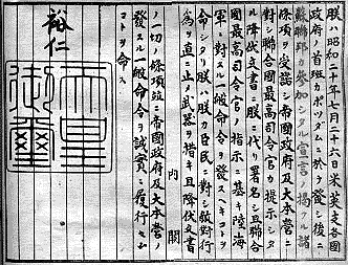 朕ハ昭和二十年七月二十六日米英支各國
政府ノ首班カポツダムニ於テ發シ後ニ
蘇聯邦カ參加シタル宣言ノ掲クル諸
條項ヲ受諾シ帝國政府及大本營ニ
對シ聯合國最高司令官カ提示シタ
ル降伏文書ニ朕ニ代リ署名シ且聯合
國最高司令官ノ指示ニ基キ陸海
軍ニ對スル一般命令ヲ發スヘキコトヲ
命シタリ朕ハ朕カ臣民ニ對シ敵對行
內閣
爲ヲ直ニ止メ武器ヲ措キ且降伏文書
ノ一切ノ條項竝ニ帝國政府及大本營ノ
發スル一般命令ヲ誠實ニ履行セム
コトヲ命ス
裕仁
天皇
御璽